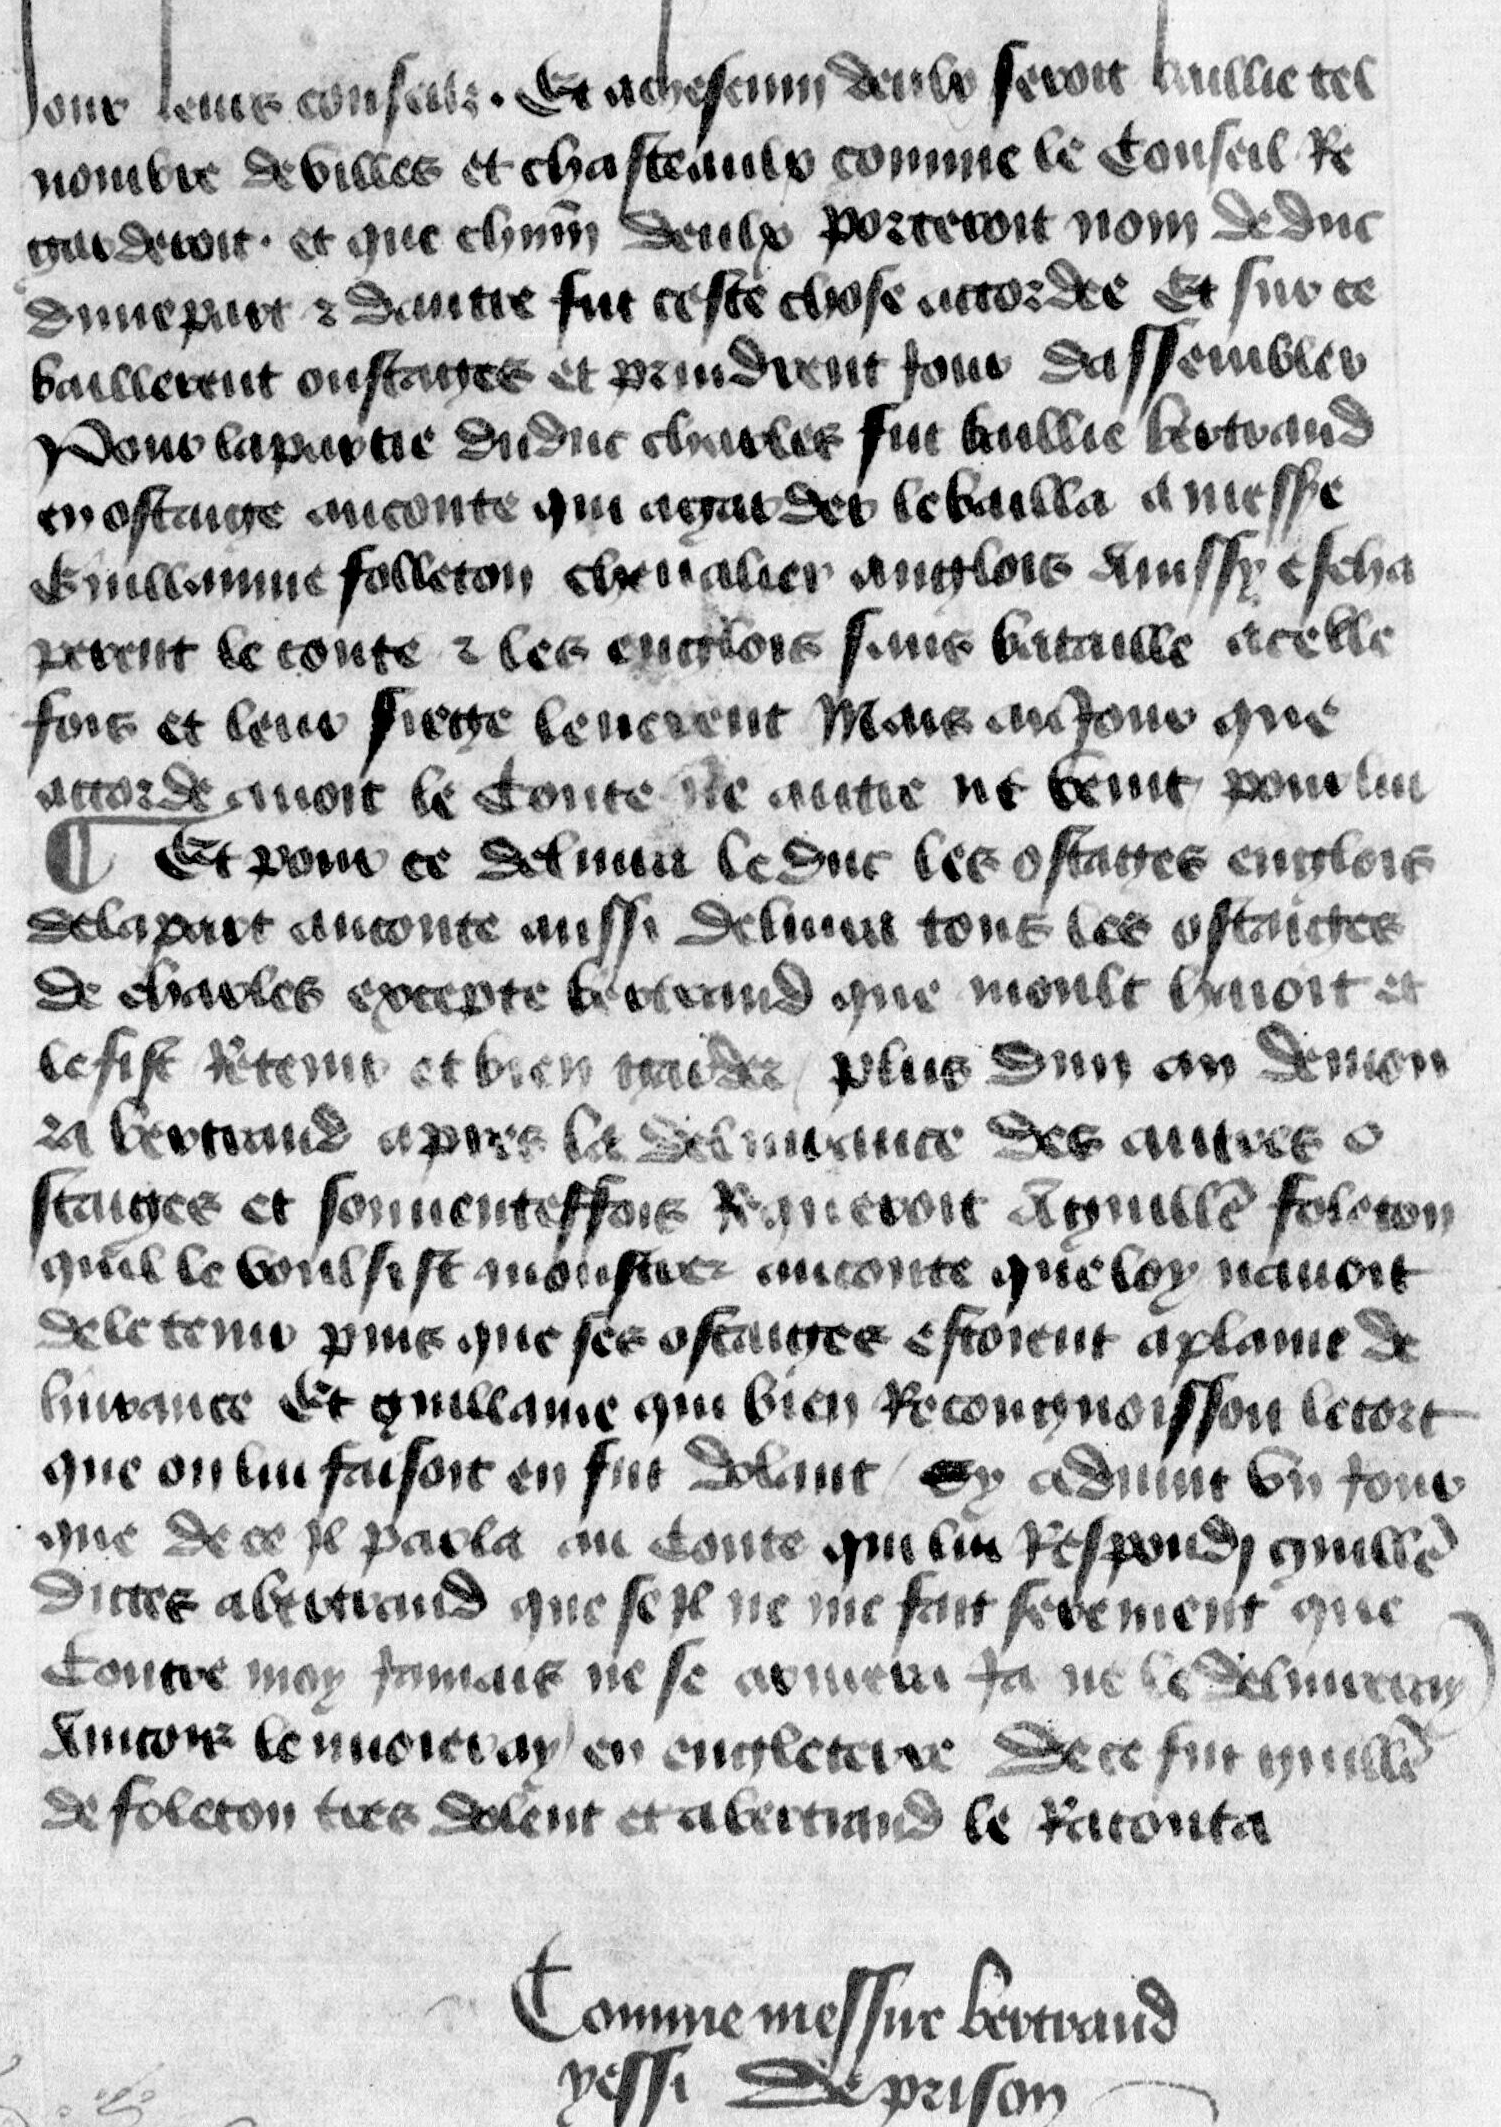 Jour leurs conseilz. Et achescunn deulx seroit baillie tel
nombre de villes et chasteaulx comme le Conseil Re
garderoit. et que chũm deulx porteroit nom de duc
dunepart ⁊ dautre fut ceste chose accordee Et sur ce
baillerent oustages et prindrent jour dassembler
Pour lapartie duduc charles fut baillie bertrand
en ostaige auconte qui agarder lebailla a messire
Guillaume folleton chevalier anglois Aussy escha
perent le conte ⁊ les englois sans bataille acelle
fois et leur siege leverent Mais aujour que
accorde avoit le Conte ne autre ne vint pour lui
Et pour ce delivra leduc les ostages englois
delapart auconte aussi delivra tous les ostaiges
de charles excepte bertrand que moult havoit et
lefist Retenir et bien garder / plus dun an demou
ra bertrand apres la delivrance des autres o
staiges et souventeffois Requeroit Aguillẽ foleton
quil le voulsist monstrer auconte que loy navoit
dele tenir puis que ses ostaiges estoient aplaine de
livrance Et guillame qui bien Recongnoisson letort
que on lui faisoit en fut dolant / Sy advint vn jour
que de ce jl parla au Conte qui lui Respondj guillẽ
dictes abertrand que se jl ne me fait serement que
Contre moy jamais ne se armera ja ne le delivreray
Aincoiz lenvoieray en engleterre De ce fut guillẽ
de foleton tres dolent et abertrand le Raconta
Comme messire bertrand
yssi de prison